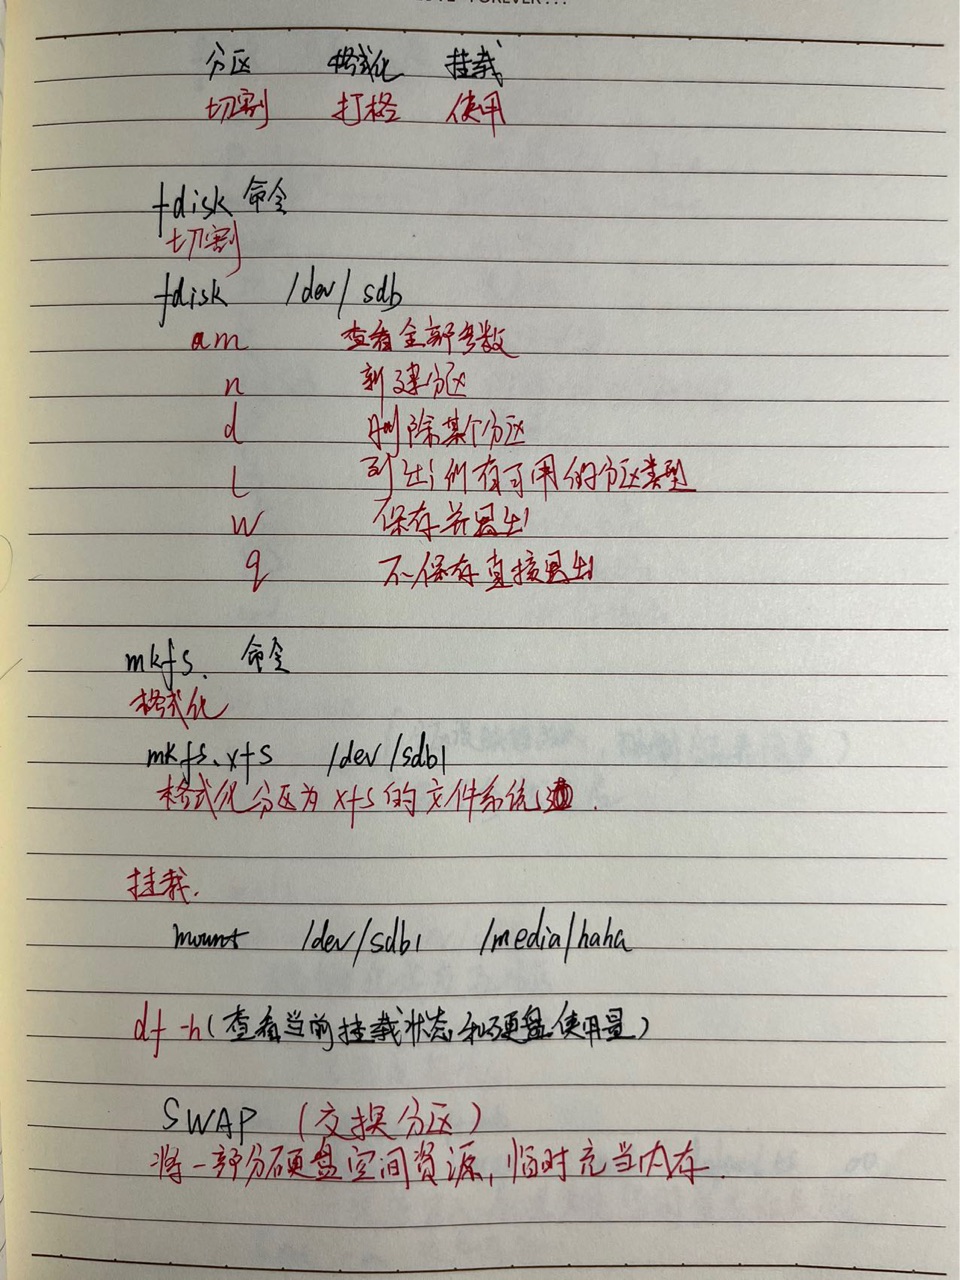 分区 格式化 挂载
切割 打格 使用
fdisk 命令
切割
fdisk /dev/sdb
m 查看全部参数
n 新建分区
d 删除某个分区
l 列出所有可用的分区类型
w 保存并退出
q 不保存直接退出
mkfs. 命令
格式化
mkfs.xfs /dev/sdb1
格式化分区为xfs的文件系统.
挂载.
mount /dev/sdb1 /media/haha
df -h(查看当前挂载状态和硬盘使用量)
SWAP (交换分区)
将一部分硬盘空间资源,临时充当内存.